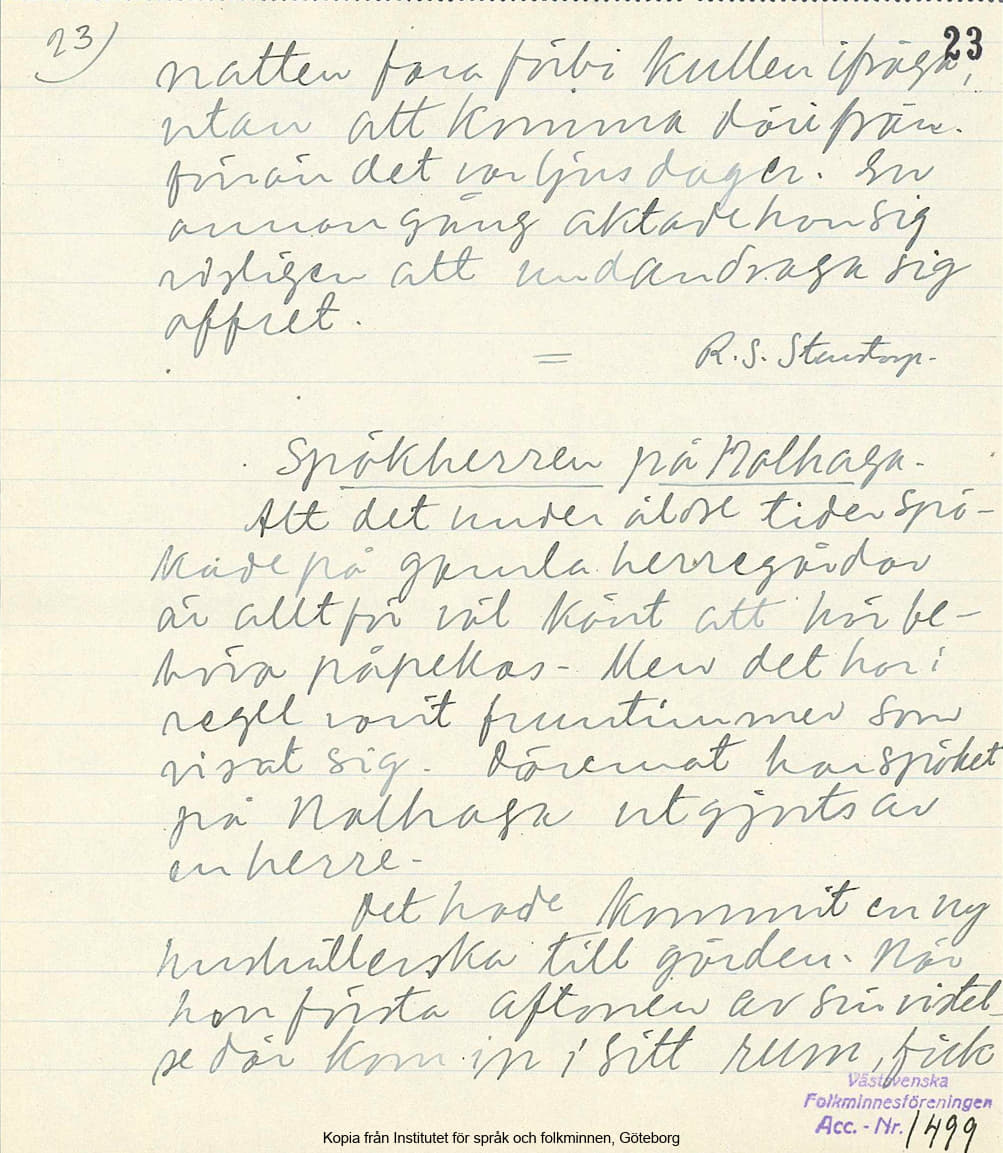 23)
23
natten fara förbi kullen ifråga,
utan att komma därifrån.
förrän det var ljus dager. En
annan gång aktade hon sig
visligen att undandraga sig
offret.
= R. S. Stenstorp.
Spökherren på Nolhaga.
Att det under äldre tider spö-
kade på gamla herregårdar
är allt för väl känt att här be-
höva påpekas. Men det har i
regel varit fruntimmer som
visat sig. Däremot har spöket
på Nolhaga utgjorts av
en herre.
Det hade kommit en ny
hushållerska till gården. När
hon första aftonen av sin vistel-
se där kom in i sitt rum, fick
Västsvenska
Folkminnesföreningen
Acc. - Nr. 1499
Kopia från Institutet för språk och folkminnen, Göteborg